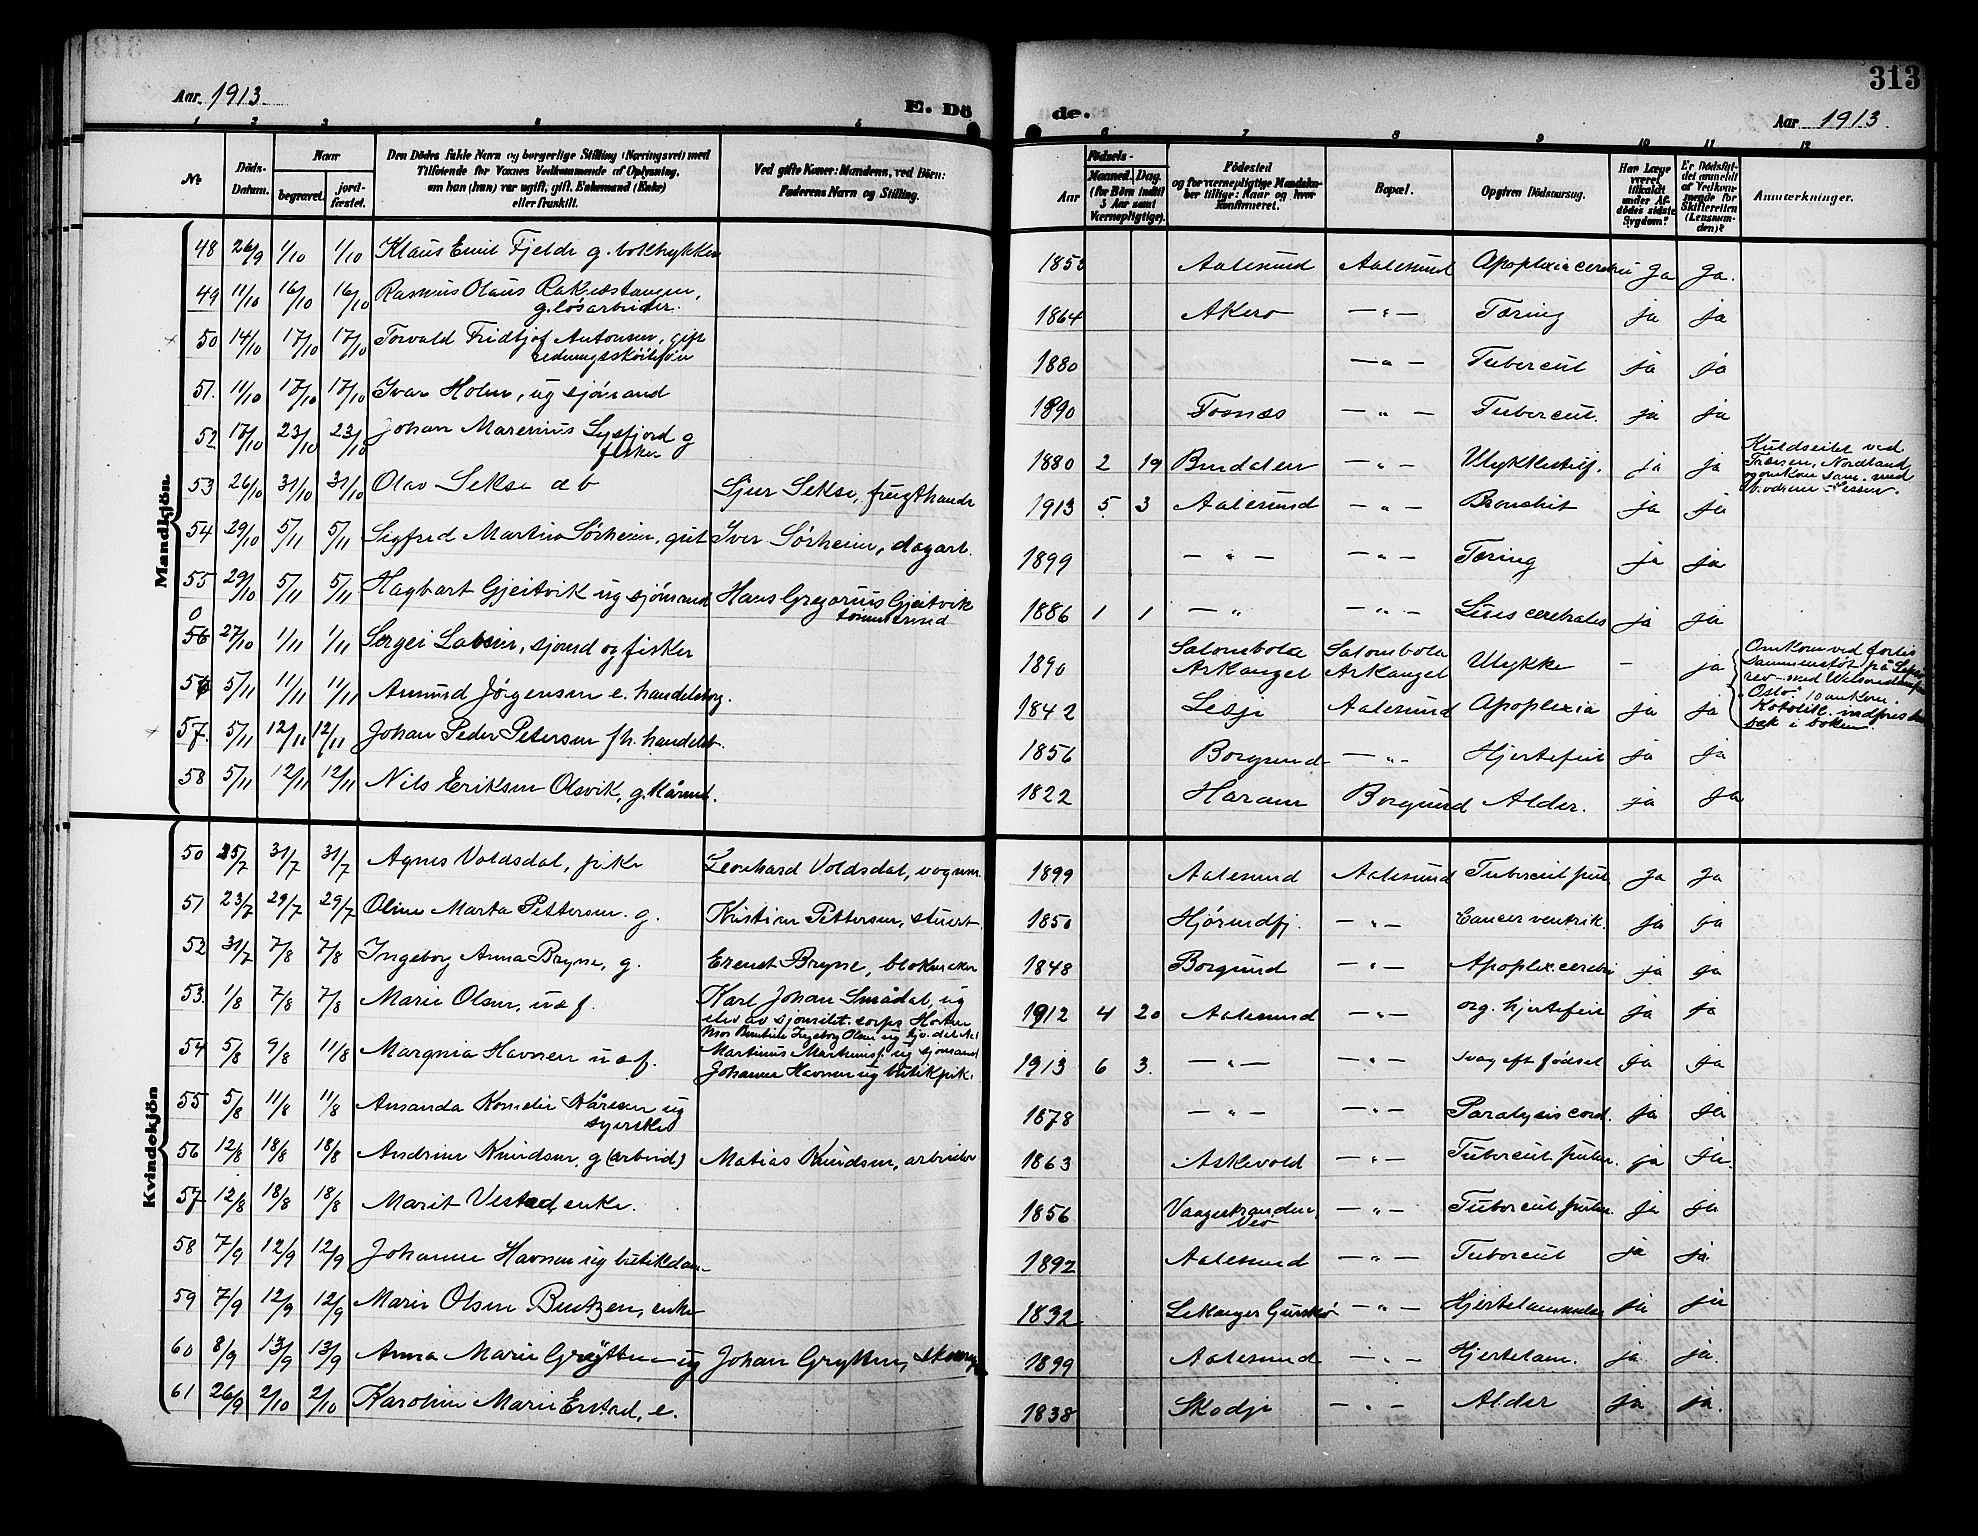 313
Aar 1913. E. Dö de. Aar 1913.
1 2 3 4 5 6 7 8 9 10 11 12
№ Döds-Datum. Naar begravet. jordfæstet. Den Dödes fulde Navn og borgerlige Stilling (Næringsvei) med Tilföiende for Voxnes Vedkommende af Oplysning, om han (hun) var ugift, gift, Enkemand (Enke) eller fraskilt. Ved gifte Koner: Mandens, ved Börn: Faderens Navn og Stilling. Födsels- Aar Maaned. Dag. (for Börn indtil 3 Aar samt Værnepligtige). Födested og for værnepligtige Mandskaber tillige: Naar og hvor konfirmeret. Bopæl. Opgiven Dödsaarsag. Har Læge været tilkaldt under Afdödes sidste Sygdom? Er Dödsfaldet anmeldt af Vedkommende for Skifteretten (Lensmanden)? Anmærkninger.
Mandkjön.
48 26/9 1/10 1/10 Klaus Emil Fjelde g. boktrykker 185 Aalesund Aalesund Apoplexia cerebri Ja Ja.
49 11/10 16/10 16/10 Rasmus Olaus Rakvaastangen, g. løsarbeider. 1864 Akerø — " — Tæring ja ja
50 14/10 17/10 17/10 Torvald Fridtjof Antonsen, gift redningsskøitefør 1880 — " — Tubercul ja ja
51. 11/10 17/10 17/10 Ivar Holm, ug sjømand 1890 — " — Tubercul. ja ja
52 17/10 23/10 23/10 Johan Marenius Sysfjord g fisker 1880 2 19 Bindalen — " — Ulykkestilf. ja ja Kuldseilet ved Træsen, Nordland, og omkom sam. med
53 26/10 31/10 31/10 Olav Sekse d b Sjur Sekse, frugthandl 1913 5 3 Aalesund — " — Bronchit ja ja
54 29/10 5/11 5/11 Sigfred Martin Sørheim, gut Iver Sørheim, dagarb. 1899 — " — — " — Tæring ja ja
55 29/10 5/11 5/11 Hagbart Gjeitvik ug sjømand Hans Gregorius Gjeitvik tømmermd 1886 1 1 — " — " — cerebrales ja ja
56 27/10 1/11 1/11 Sergei sjømd og fisker 1890 Solombola Arkangel Solombola Arkangel Ulykke - ja Omkom ved forlis Sammenstøt på rev - med "Oslo". 10 omkom.
56 5/11 11/11 11/11 Amund Jørgensen e. handelsborg. 1842 Lesje Aalesund Apoplexia ja ja
57. 5/11 12/11 12/11 Johan Peder Petersen fh. handelsb. 1856 Borgund — " — Hjertefeil ja ja
58 5/11 12/11 12/11 Nils Eriksen Olsvik, g. kårmd. 1822 Haram Borgund Alder. ja Ja
Kvindekjön
50 25/7 31/7 31/7 Agnes Voldsdal, pike Leonhard Voldsdal, vognm. 1899 Aalesund Aalesund Tubercul pul Ja Ja
51 23/7 29/7 29/7 Oline Marta Pettersen. g. Kristian Pettersen, stuert. 1850 Hjørundfj. — " — Cancer ventrik. ja ja
52 31/7 7/8 7/8 Ingeborg Anna Bryne, g. Erendt Bryne, blokmaker 1848 Borgund — " — Apoplex. cerebri ja ja
53. 1/8 7/8 7/8 Marie Olsen, u æ f. Karl Johan Smådal, ug elev av sjømilit. corps Horten Mor Ingeborg Olsen ug 1912 4 20 Aalesund — " — org. hjertefeil ja ja
54 5/8 9/8 11/8 Margnia Havnen u æ f. Martinus ug sjømand Johanne Havnen ug butikpik. 1913 6 3. — " — — " — svag eft fødsel Ja Ja
55 5/8 11/8 11/8 Amanda Kornelie Håresen ug syerske 1878 — " — — " — Paralysis cord. ja ja
56 12/8 18/8 18/8 Andrine Knudsen, g (arbeid) Matias Knudsen, arbeider 1863 Askevold — " — Tubercul pulm. ja Ja.
57 12/8 18/8 18/8 Marit Vestad, enke. 1856 Vaagestranden, Veø — " — Tubercul pulm. Ja ja
58 7/9 12/9 12/9 Johanne Havnen ug butikdam 1892 Aalesund — " — Tubercul ja ja.
59 7/9 12/9 12/9 Marie Olsen Buntzen, enke 1832 Lekanger Gurskø — " — Hjertelammelse ja ja
60 8/9 13/9 13/9 Anna Marie Grytten ug Johan Grytten, 1899 Aalesund — " — Hjertelam. ja ja.
61 26/9 2/10 2/10 Karoline Marie Erstad, e. 1838 Skodje — " — Alder ja ja.